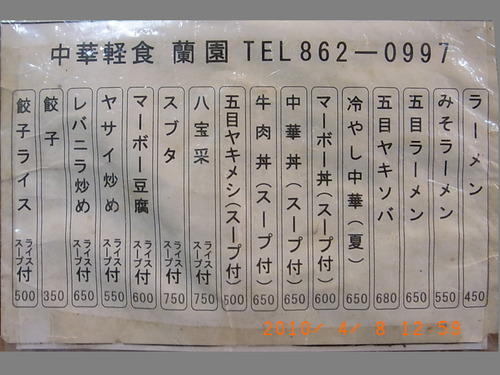 中華軽食 蘭園 TEL862－0997
ラーメン 450
みそラーメン 550
五目ラーメン 650
五目ヤキソバ 680
冷やし中華(夏) 650
マーボー丼(スープ付) 600
中華丼(スープ付) 650
牛肉丼(スープ付) 650
五目ヤキメシ(スープ付) 500
八宝采 ライススープ付 750
スブタ ライススープ付 750
マーボー豆腐 ライススープ付 600
ヤサイ炒め ライススープ付 550
レバニラ炒め ライススープ付 650
餃子 350
餃子ライス スープ付 500
2010/ 4/ 8 12:59